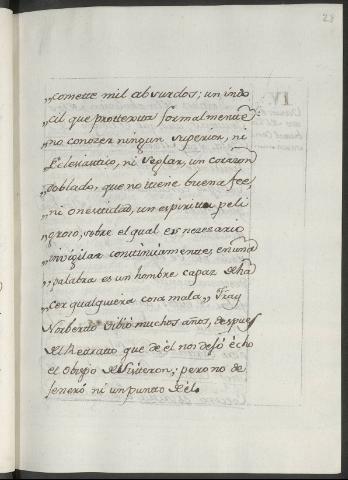 23
„comette mil absurdos; un indo
„cil que protexta formalmente
„no conozer ningun superior, ni
„Eclesiastico, ni Seglar, un corazon
„doblado, que no tiene buena fee,
„ni onestidad, un espiritu peli
„groso, sobre el qual es nezesario
„invigilar continuamente; en una
„palabra es un hombre capaz de ha
„cer qualquiera cosa mala„ Fray
Norberto vibió muchos años, despues
del Retratto que de él nos dejó écho
el Obispo de Sisteron; pero no de
generó ni un puntto de él.